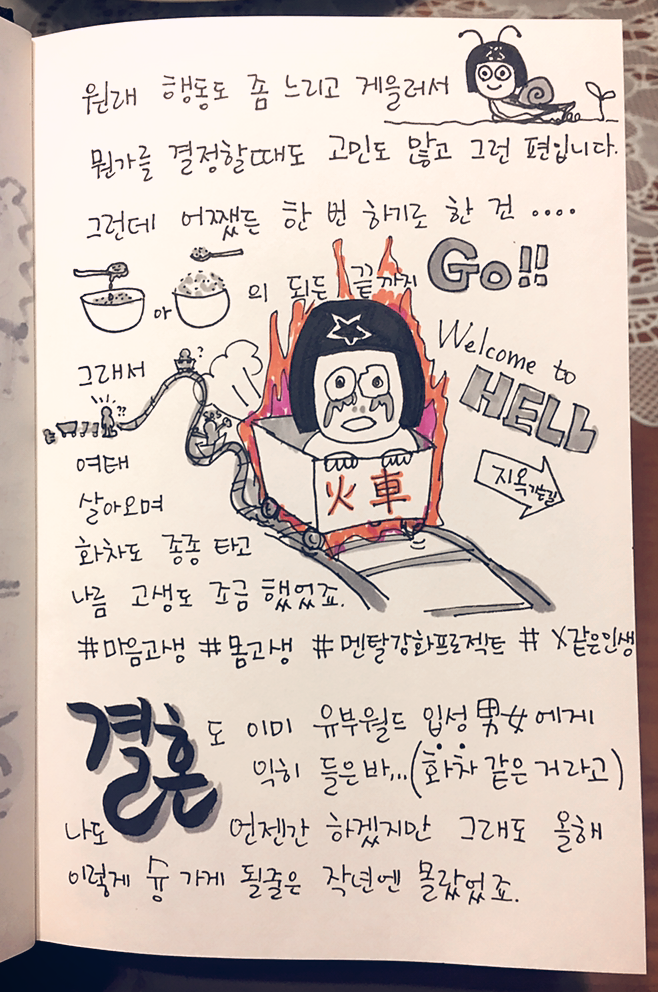 원래 행동도 좀 느리고 게을러서
뭔가를 결정할때도 고민도 많고 그런 편입니다.
그런데 어쨌든 한 번 하기로 한 건 ....
아 의 되든 끝까지 GO!!
Welcome to
HELL
그래서
?
??
SOS
지옥가는길
여태
살아오며
火車
화차도 종종 타고
나름 고생도 조금 했었죠.
#마음고생 #몸고생 #멘탈강화프로젝트 # X같은인생
결혼도 이미 유부월드 입성 男女에게
익히 들은바...(화차 같은 거라고)
나도 언젠간 하겠지만 그래도 올해
이렇게 슝 가게 될줄은 작년엔 몰랐었죠.